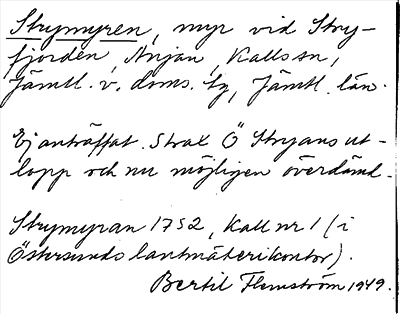 Strymyren, myr vid Stry-
fjorden, Anjan, Kalls sn,
Jämtl. v. doms. tg, Jämtl. län.
Ej anträffat. Strax Ö Stryåns ut-
lopp och nu möjligen överdämd.
Strymyran 1752, Kall nr 1 (i
Östersunds lantmäterikontor).
Bertil Flemström 1949.